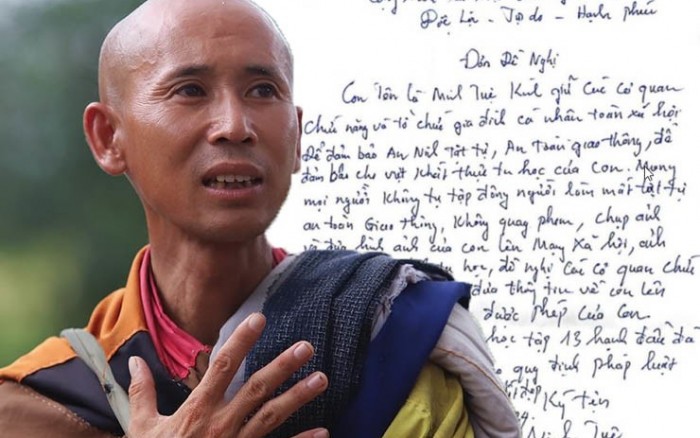 Độc Lập - Tự do - Hạnh phúc
Đơn Đề Nghị
Con Tên là Minh Tuệ Kính gửi Các cơ quan
Chức năng và tổ chức gia đình cá nhân toàn xã hội
Để đảm bảo An Ninh Trật tự, An Toàn giao thông, để
đảm bảo cho việc Khất thực tu học của Con. Mong
mọi người Không tụ tập đông người làm mất trật tự
an toàn Giao thông, Không quay phim, chụp ảnh
và đưa hình ảnh của con lên Mạng Xã hội, ảnh
học, đề nghị Các cơ quan chức
đưa thông tin về con lên
được phép Của Con
học tập 13 hạnh đầu đà
quy định pháp luật
Ký tên
Minh Tuệ